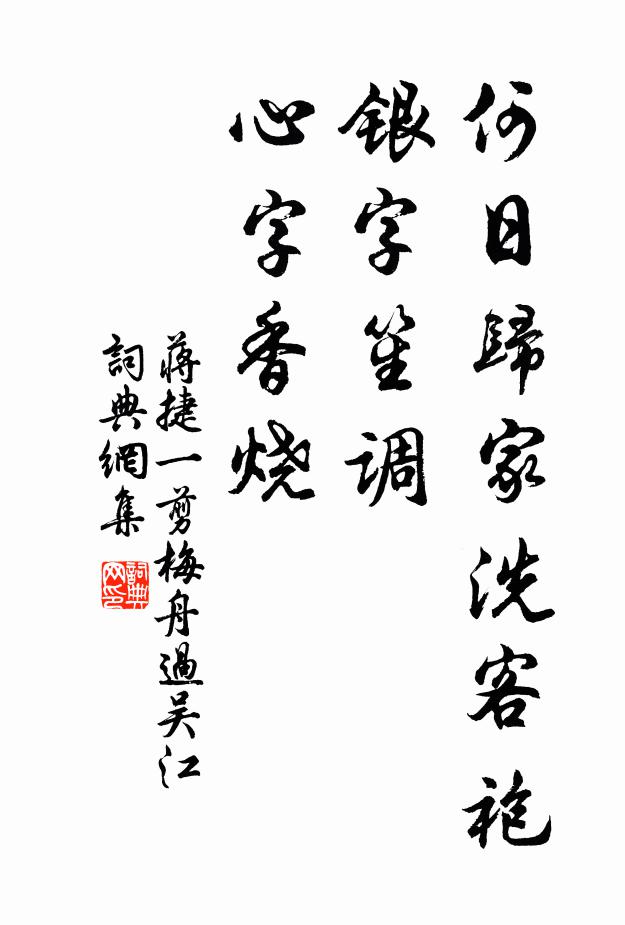 何日歸家洗客袍
銀字笙調
心字香燒
蔣捷一剪梅舟過吴江
詞典網集
詞典网印